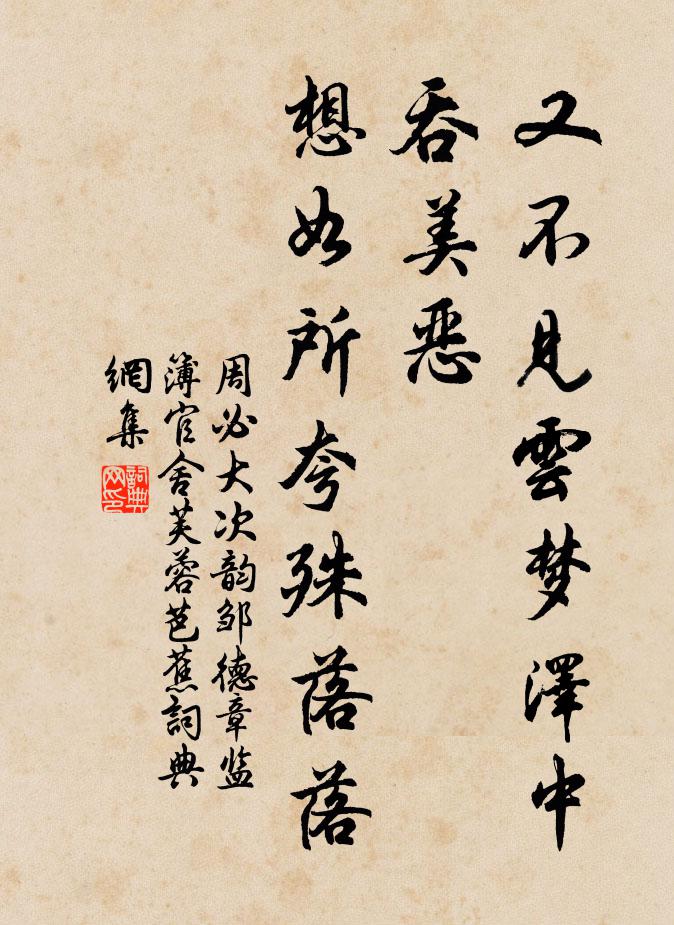 又不見雲梦澤中
吞美惡
想如所夸殊落落
周必大次韵邹德章监
簿官舍芙蓉芭蕉詞典
網集
詞典网印